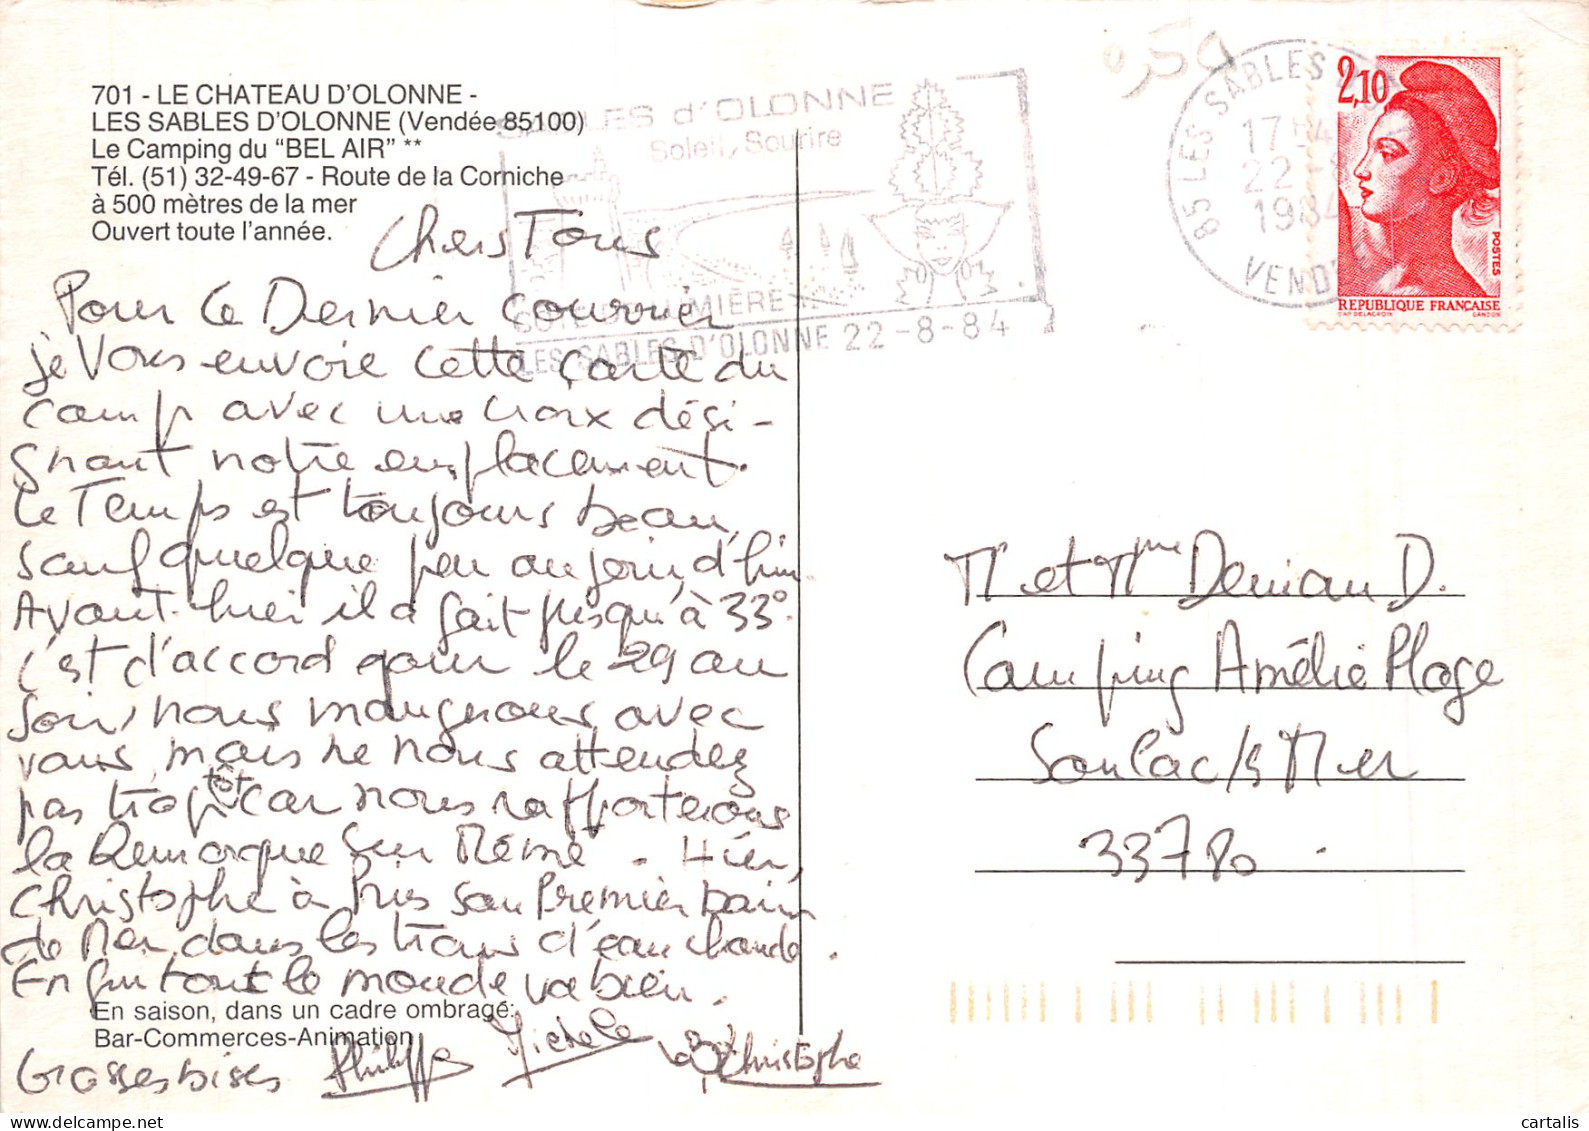 701 - LE CHATEAU D'OLONNE -
LES SABLES D'OLONNE (Vendée 85100)
Le Camping du "BEL AIR" **
Tél. (51) 32-49-67 - Route de la Corniche
à 500 mètres de la mer
Ouvert toute l'année.
SABLES d'OLONNE
Soleil, Sourire
CÔTE DE LUMIÈRE
LES SABLES D'OLONNE 22-8-84
0,50
85 LES SABLES D'
17H4
22-8
1984
VENDÉE
2,10
POSTES
REPUBLIQUE FRANÇAISE
D'AP. DELACROIX GANDON
Chers Tous
Pour ce Dernier courrier
je Vous envoie cette carte du
camp avec une croix dési-
gnant notre emplacement.
Le Temps est toujours beau,
sauf quelque peu aujourd'hui.
Avant-hier il a fait jusqu'à 33°.
C'est d'accord pour le 29 au
soir, nous mangerons avec
vous, mais ne nous attendez
pas trop tôt car nous rapporterons
la Remorque sur Mémé. Hier,
Christophe à Pris son Premier bain
de Mer, dans les trous d'eau chaude.
Enfin tout le monde va bien.
En saison, dans un cadre ombragé:
Bar-Commerces-Animation
Grosses bises Philippe Michele Christophe
M et Mme Deniau D.
Camping Amélie Plage
Soulac/s Mer
33780.
cartalis